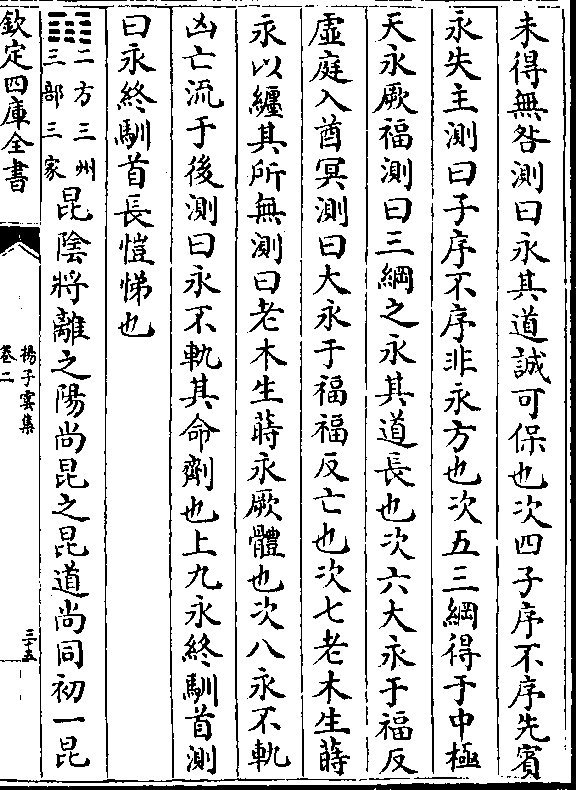 未得無咎測曰永其道誠可保也次四子序不序先賓
永失主測曰子序不序非永方也次五三綱得于中極
天永厥福測曰三綱之永其道長也次六大永于福反
虛庭入酋冥測曰大永于福福反亡也次七老木生蒔
永以纏其所無測曰老木生蒔永厥體也次八永不軌
凶亡流于後測曰永不軌其命劑也上九永終馴首測
曰永終馴首長愷悌也
二方三州
三部三家
昆陰將離之陽尚昆之昆道尚同初一昆
欽定四庫全書
揚子雲集
卷二
三十五